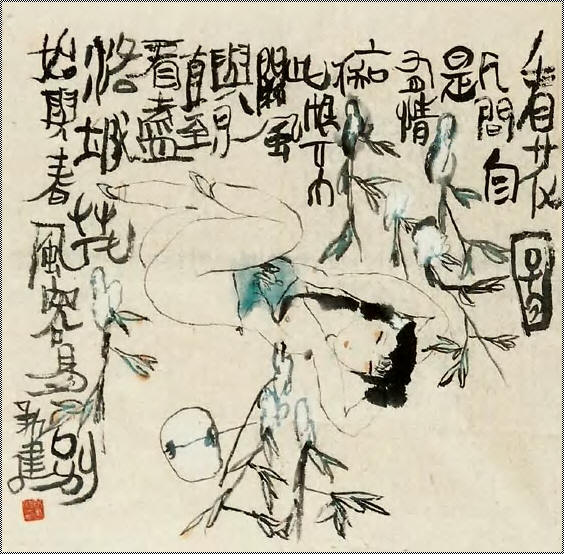 看花圖
凡間自
是
有情
痴
此恨不
關風
與月
直到
看盡
洛城花
始與春風容易別
新建